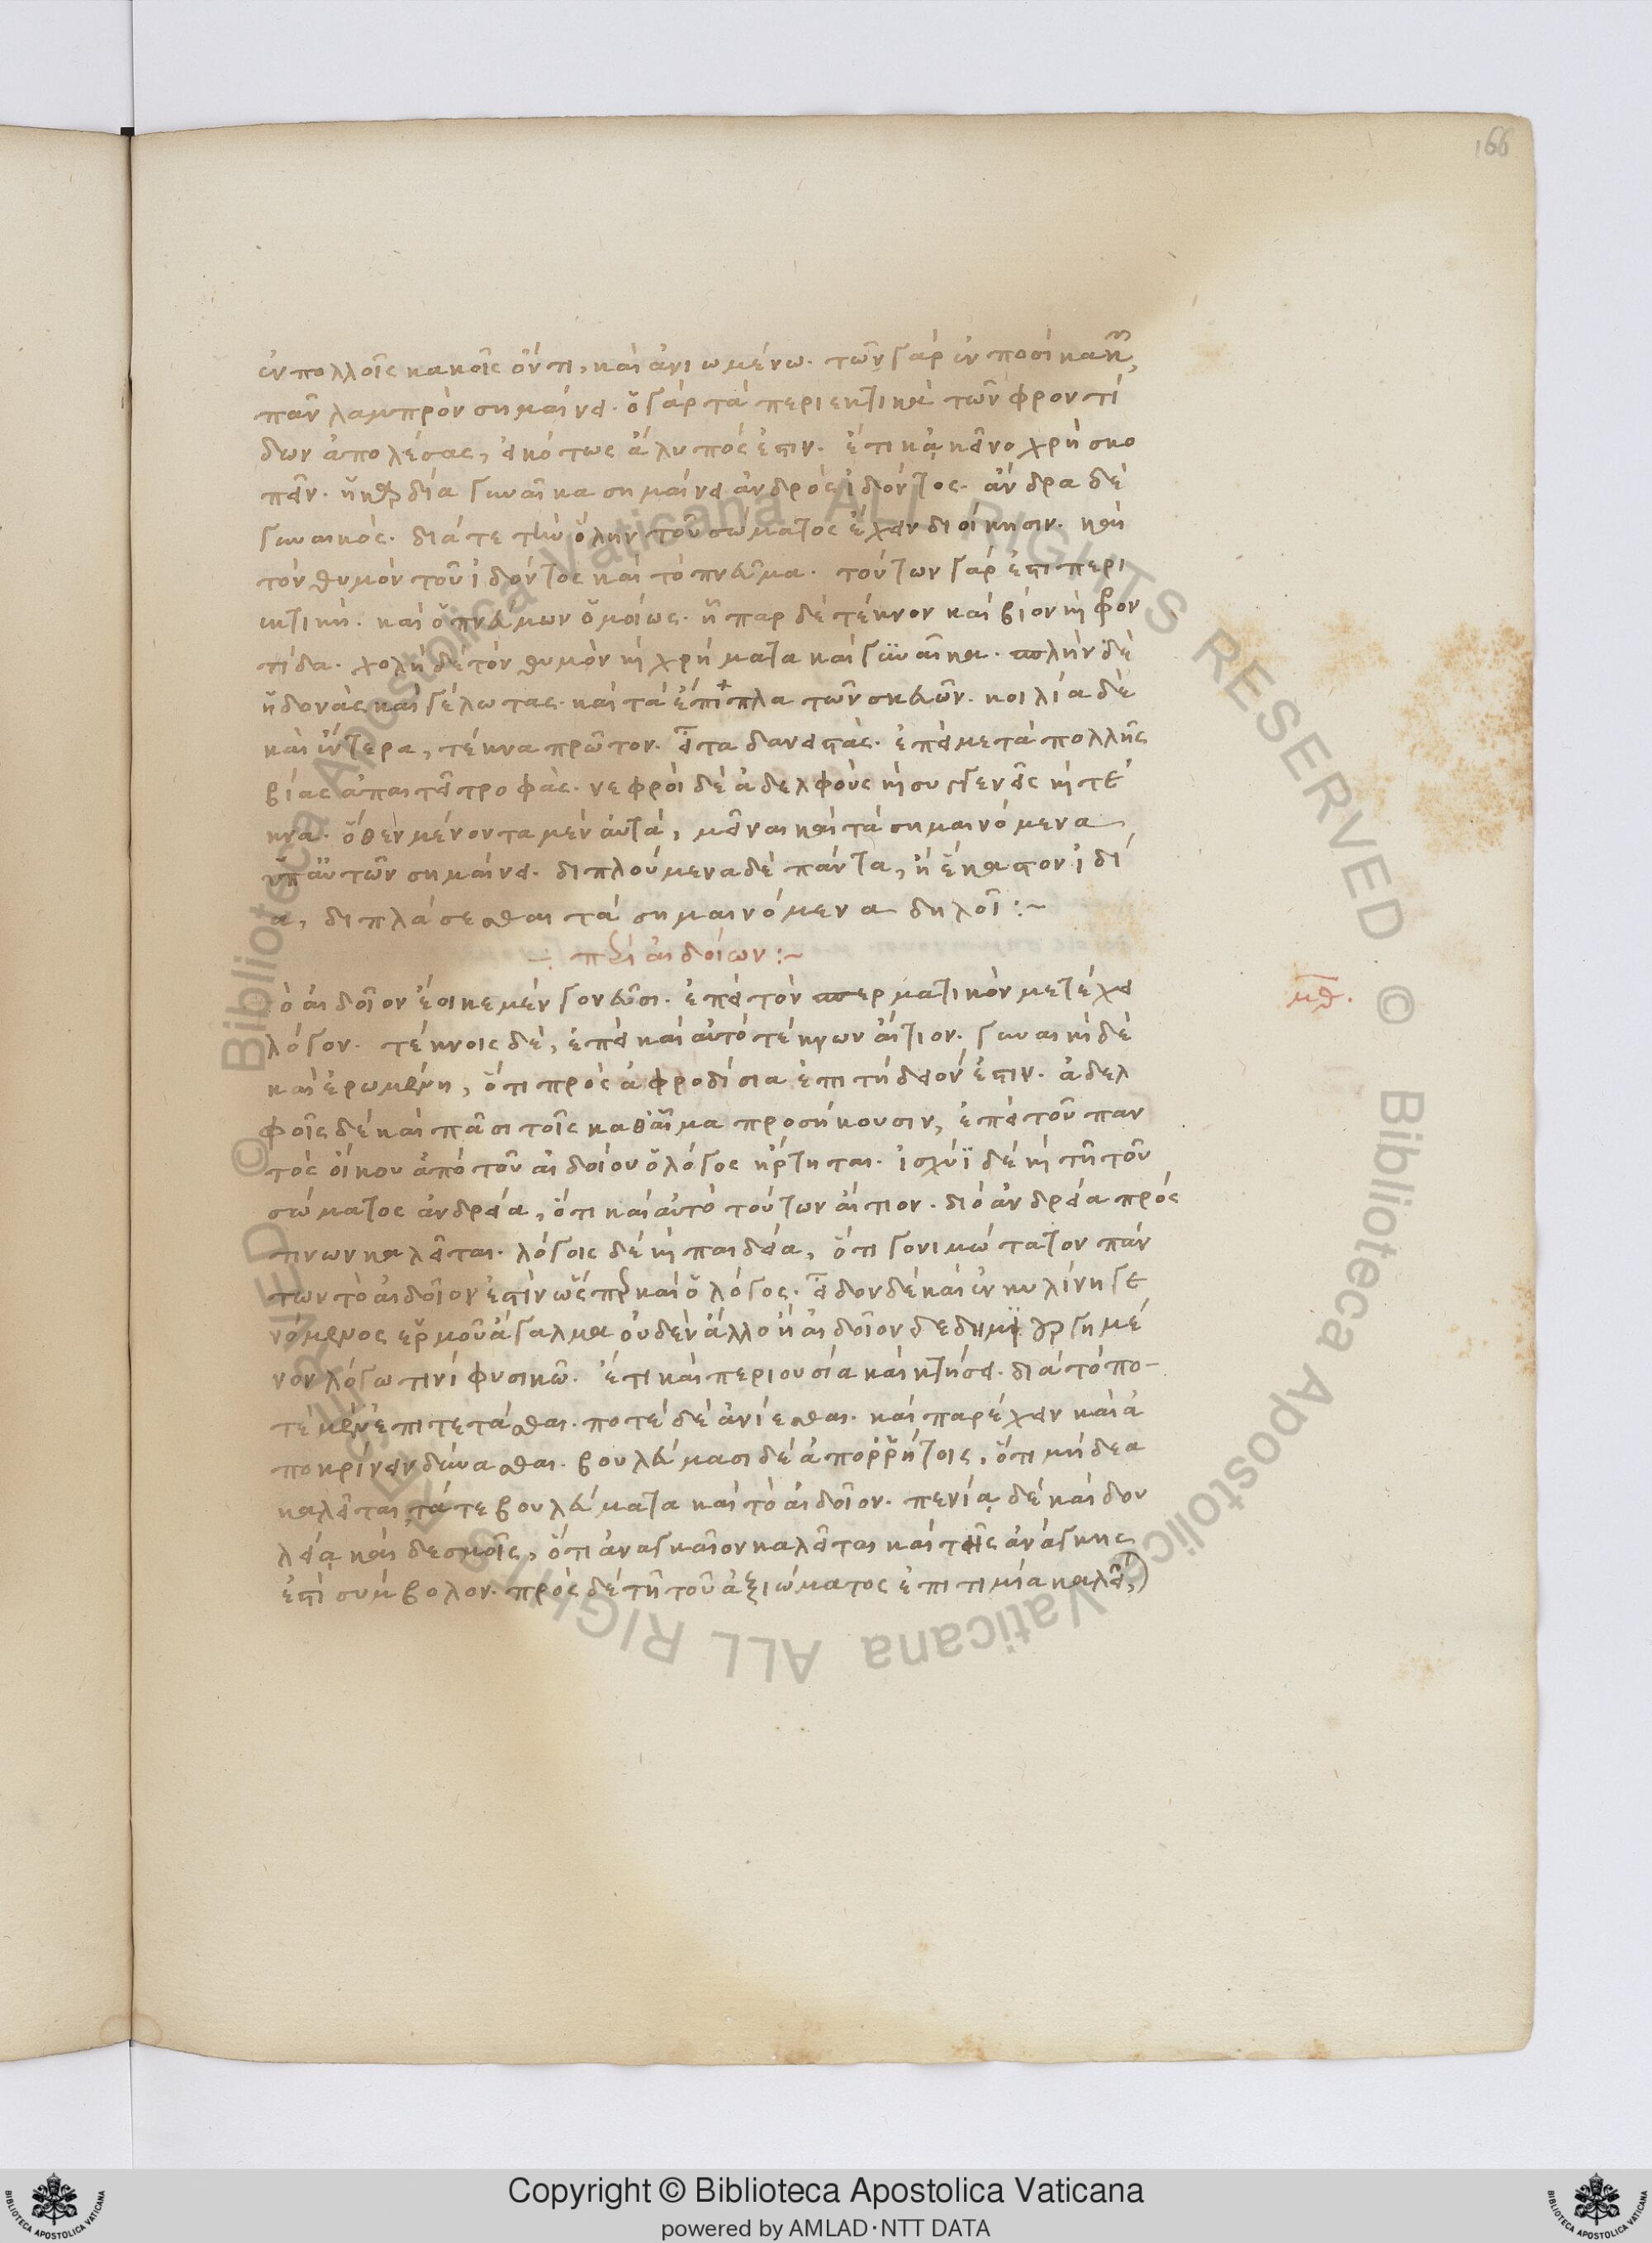 166
ἐν πολλοῖς κακοῖς ὄντι, καὶ ἀνιωμένω. τῶν γὰρ ἐν ποσὶ κακῶν
πᾶν λαμπρὸν σημαίνει. ὁ γὰρ τὰ περιεκτικὰ τῶν φροντί
δων ἀπολέσας, εἰκότως ἄλυπός ἐστιν. ἔτι κἀκεῖνο χρὴ σκο
πεῖν. ἡ καρδία γυναῖκα σημαίνει ἀνδρὸς ἰδόντος. ἄνδρα δὲ
γυναικός. διά τε τὴν ὅλην τοῦ σώματος ἔχειν διοίκησιν. καὶ
τὸν θυμὸν τοῦ ἰδόντος καὶ τὸ πνεῦμα. τούτων γάρ ἐστι περι
εκτική. καὶ ὁ πνεύμων ὁμοίως. ἧπαρ δὲ τέκνον καὶ βίον καὶ φρον
τίδα. χολὴ δὲ τὸν θυμὸν καὶ χρήματα καὶ γυναῖκα. σπλὴν δὲ
ἡδονὰς καὶ γέλωτας. καὶ τὰ ἔπιπλα τῶν σκευῶν. κοιλία δὲ
καὶ ἔντερα, τέκνα πρῶτον. εἶτα δανειστάς. ἐπεὶ μετὰ πολλῆς
βίας ἀπαιτεῖ τροφάς. νεφροὶ δὲ ἀδελφοὺς καὶ συγγενεῖς καὶ τέ
κνα. ὅθεν μένοντα μὲν αὐτά, μεῖναι καὶ τὰ σημαινόμενα
ὑπ αὐτῶν σημαίνει. διπλούμενα δὲ πάντα, ἢ ἕκαστον ἰδί
α, διπλάσεσθαι τὰ σημαινόμενα δηλοῖ :~
περὶ αἰδοίων :~
μθ.
ὸ αἰδοῖον ἔοικε μὲν γονεῦσι. ἐπεὶ τὸν σπερματικὸν μετέχει
λόγον. τέκνοις δέ, ἐπεὶ καὶ αὐτὸ τέκνων αἴτιον. γυναικὶ δὲ
καὶ ἐρωμένη, ὅτι πρὸς ἀφροδίσια ἐπιτήδειόν ἐστιν. ἀδελ
φοῖς δὲ καὶ πᾶσι τοῖς καθαῖμα προσήκουσιν, ἐπεὶ τοῦ παν
τὸς οἴκου ἀπὸ τοῦ αἰδοίου ὁ λόγος ἤρτηται. ἰσχύϊ δὲ καὶ τῆ τοῦ
σώματος ἀνδρεία, ὅτι καὶ αὐτὸ τούτων αἴτιον. διὸ ἀνδρεία πρός
τινων καλεῖται. λόγοις δὲ καὶ παιδεία, ὅτι γονιμώτατον πάν
των τὸ αἰδοῖον ἐστὶν ὥσπερ καὶ ὁ λόγος. εἶδον δὲ καὶ ἐν κυλίνη γε
νόμενος ἑρμοῦ ἄγαλμα οὐδὲν ἄλλο ἢ αἰδοῖον δεδημιουργημέ
νον λόγω τινὶ φυσικῶ. ἔτι καὶ περιουσία καὶ κτήσει. διὰ τὸ πο-
τὲ μὲν ἐπιτετάσθαι. ποτὲ δὲ ἀνίεσθαι. καὶ παρέχειν καὶ ἀ
ποκρίνειν δύνασθαι. βουλεύμασι δὲ ἀπορρήτοις, ὅτι μήδεα
καλεῖται τά τε βουλεύματα καὶ τὸ αἰδοῖον. πενίᾳ δὲ καὶ δου
λείᾳ καὶ δεσμοῖς, ὅτι ἀναγκαῖον καλεῖται καὶ τῆς ἀνάγκης
ἐστὶ σύμβολον. πρὸς δὲ τῆ τοῦ ἀξιώματος ἐπιτιμία καλεῖ
© Biblioteca Apostolica Vaticana ALL RIGHTS RESERVED
Copyright © Biblioteca Apostolica Vaticana
powered by AMLAD·NTT DATA
BIBLIOTECA APOSTOLICA VATICANA
BIBLIOTECA APOSTOLICA VATICANA